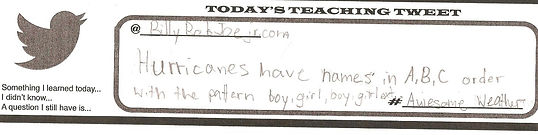 TODAY'S TEACHING TWEET
@ BillyBobJoejr.com
Hurricanes have names in A,B,C order
with the pattern boy, girl, boy, girl # Awesome Weather
Something I learned today...
I didn't know...
A question I still have is...